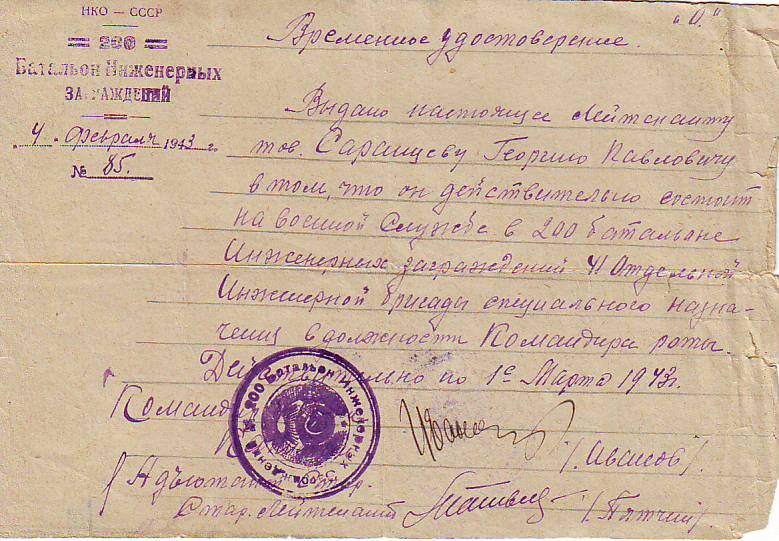 НКО — СССР
200
Батальон Инженерных
ЗАГРАЖДЕНИЙ
„ 4 „ февраля 1943 г.
№ 85.
"О."
Временное удостоверение.
Выдано настоящее Лейтенанту
тов. Саранцеву Георгию Павловичу
в том, что он действительно состоит
на военной службе в 200 баталъане
Инженерных заграждений 41 Отдельной
Инженерной бригады специального назна-
чения в должности Командира роты.
Действительно по 1е Марта 1943г.
200 Батальон Инженерных Заграждений
/. Иванов).
Адъютант
Стар. Лейтенант